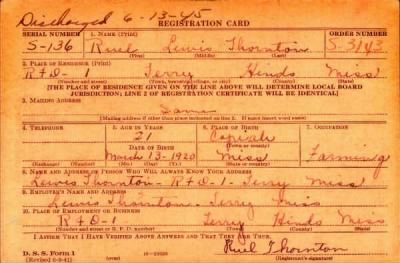 Discharged 6-13-45
REGISTRATION CARD
SERIAL NUMBER 1. NAME (Print) ORDER NUMBER
S-136 Ruel Lewis Thornton S-3143
(First) (Middle) (Last)
2. PLACE OF RESIDENCE (Print)
R+D-1 Terry Hinds Miss
(Number and street) (Town, township, village, or city) (County) (State)
[THE PLACE OF RESIDENCE GIVEN ON THE LINE ABOVE WILL DETERMINE LOCAL BOARD
JURISDICTION; LINE 2 OF REGISTRATION CERTIFICATE WILL BE IDENTICAL]
3. MAILING ADDRESS
Same
[Mailing address if other than place indicated on line 2. If same insert word same]
4. TELEPHONE 5. AGE IN YEARS 6. PLACE OF BIRTH 7. OCCUPATION
21
DATE OF BIRTH (Town or county)
March 13-1920 Miss Farming
(Exchange) (Number) (Mo.) (Day) (Yr.) (State or country)
8. NAME AND ADDRESS OF PERSON WHO WILL ALWAYS KNOW YOUR ADDRESS
Lewis Thornton - R+D-1-Terry Miss
9. EMPLOYER'S NAME AND ADDRESS
Lewis Thornton - Terry Miss
10. PLACE OF EMPLOYMENT OR BUSINESS
R+D-1 Terry Hinds Miss
(Number and street or R. F. D. number) (Town) (County) (State)
I AFFIRM THAT I HAVE VERIFIED ABOVE ANSWERS AND THAT THEY ARE TRUE.
Ruel Thornton
D. S. S. Form 1
(Registrant's signature)